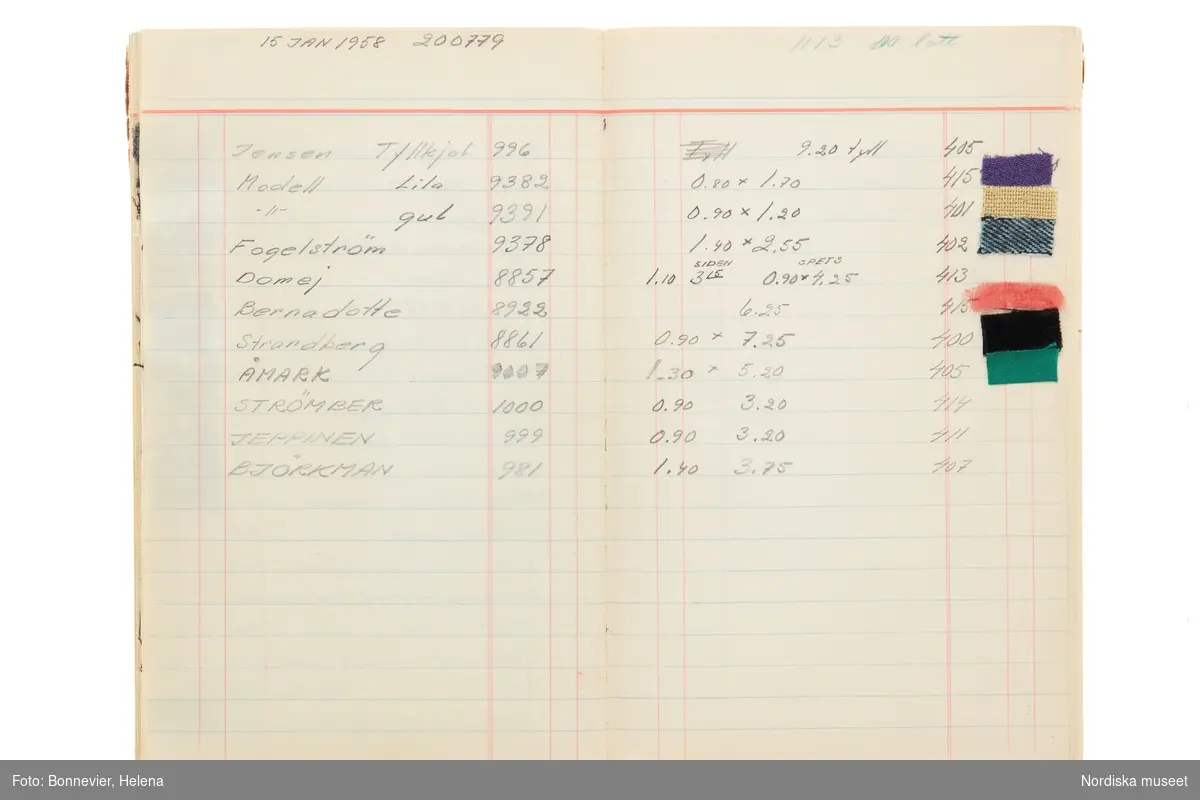 15 JAN 1958 200779 1113
Jensen Tyllkjol 996 9.20 tyll 405
Modell Lila 9382 0.80 x 1.70 415
-"- gul 9391 0.90 x 1.20 401
Fogelström 9378 1.40 x 2.55 402
SIDEN SPETS
Domej 8857 1.10 3 15 0.90 x 4.25 413
Bernadotte 8922 6.25 415
Strandberg 8861 0.90 x 7.25 400
ÅMARK 9007 1.30 x 5.20 405
STRÖMBER 1000 0.90 3.20 414
JEPPINEN 999 0.90 3.20 411
BJÖRKMAN 981 1.40 3.75 407
Foto: Bonnevier, Helena Nordiska museet